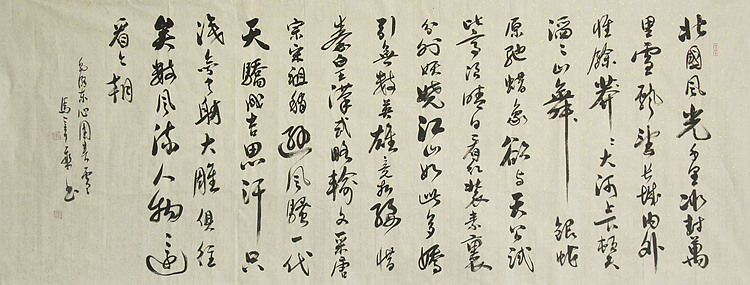 北國風光千里冰封萬
里雪飄望長城內外
惟餘莽〻大河上下頓失
滔〻山舞銀蛇
原馳蠟象欲與天公試
比高須晴日看紅裝素裹
分外妖嬈江山如此多嬌
引無數英雄競折腰惜
秦皇漢武略輸文采唐
宗宋祖稍遜風騷一代
天驕成吉思汗只
識彎弓射大雕俱往
矣數風流人物還
看今朝
毛澤東沁園春雪
馬書